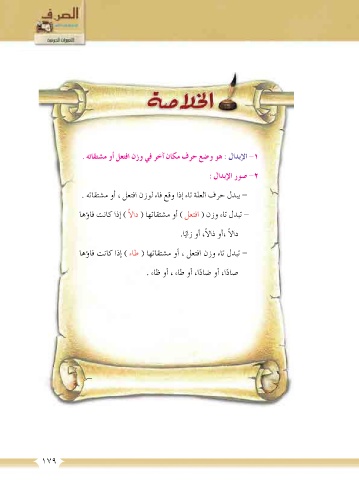 الصرف
الخلاصة
١- الإبدال : هو وضع حرف مكان آخر في وزن افتعل أو مشتقاته .
٢- صور الإبدال :
- يبدل حرف العلة تاء إذا وقع فاء لوزن افتعل ، أو مشتقاته .
- تبدل تاء وزن ( افتعل ) أو مشتقاتها ( دالاً ) إذا كانت فاؤها
دالاً ،أو ذالاً، أو زايًا.
- تبدل تاء وزن افتعل ، أو مشتقاتها ( طاء ) إذا كانت فاؤها
صادًا، أو ضادًا، أو طاء ، أو ظاء .
١٧٩